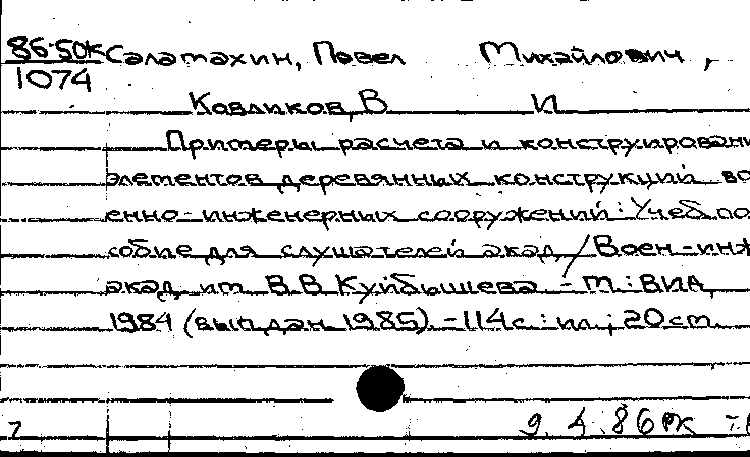 86-50К Саламахин, Павел Михайлович,
1074
Козликов, В И
Примеры расчета и конструировани
элементов деревянных конструкций во
енно-инженерных сооружений: Учеб. по
собие для слушателей акад. / Воен.-инж
акад. им. В.В. Куйбышева. - М.: ВИА,
1984 (вып. дан. 1985). - 114 с.: ил.; 20 см.
7 9. 4. 86 РК